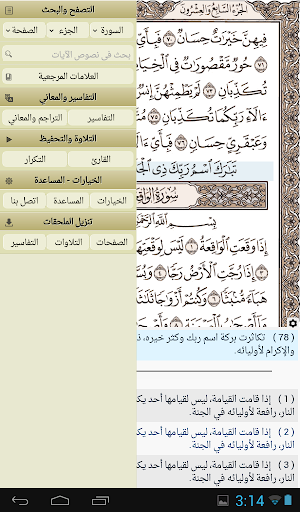 التصفح والبحث
السورة
الجزء
الصفحة
بحث في نصوص الآيات
العلامات المرجعية
التفاسير والمعاني
التفاسير
التراجم والمعاني
التلاوة والتحفيظ
القارئ
التكرار
الخيارات - المساعدة
الخيارات
المساعدة
اتصل بنا
تنزيل الملحقات
الصفحات
التلاوات
التفاسير
الجزء السابع والعشرون
فِيهِنَّ خَيْرَٰتٌ حِسَانٌ ٧٠ فَبِأَيِّ
تُكَذِّبَانِ ٧١ حُورٌ مَّقْصُورَٰتٌ فِي ٱلْخِيَا
تُكَذِّبَانِ ٧٣ لَمْ يَطْمِثْهُنَّ إِنس
ءَالَآءِ رَبِّكُمَا تُكَذِّبَانِ ٧٥
وَعَبْقَرِيٍّ حِسَانٍ ٧٦ فَبِأَيّ
تَبَٰرَكَ ٱسْمُ رَبِّكَ ذِي ٱلْجَ
سُورَةُ الوَاقِ
بِسْمِ ٱللَّهِ ٱلرَّحْمَٰ
إِذَا وَقَعَتِ ٱلْوَاقِعَةُ ١ لَيْسَ لِوَقْعَتِهَ
إِذَا رُجَّتِ ٱلْأَرْضُ رَجًّا
هَبَآءً مُّنۢبَثًّا ٦ وَكُنتُمْ أَزْوَٰجًا ثَلَٰثَ
( 78 ) تكاثرت بركة اسم ربك وكثر خيره، ذ
والإكرام لأوليائه.
( 1 ) إذا قامت القيامة، ليس لقيامها أحد يكذ
النار، رافعة لأوليائه في الجنة.
( 2 ) إذا قامت القيامة، ليس لقيامها أحد يكذ
النار، رافعة لأوليائه في الجنة.
( 3 ) إذا قامت القيامة، ليس لقيامها أحد يكذ
النار، رافعة لأوليائه في الجنة.
3:14